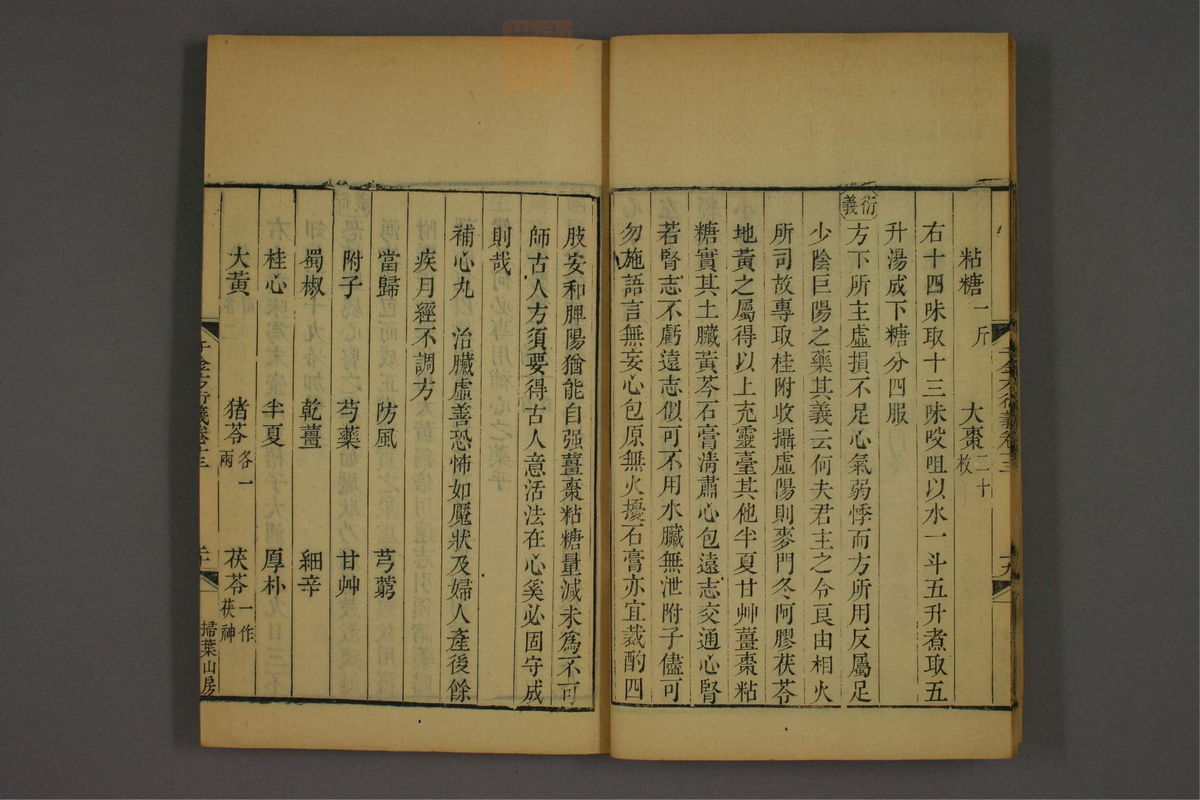 粘糖一斤　大棗二十枚
右十四味取十三味㕮咀以水一斗五升煮取五
升湯成下糖分四服
衍義
方下所主虛損不足心氣弱悸而方所用反屬足
少陰巨陽之藥其義云何夫君主之令良由相火
所司故專取桂附收攝虛陽則麥門冬阿膠茯苓
地黃之屬得以上充靈臺其他半夏甘艸薑棗粘
糖實其土臟黃芩石膏淸肅心包遠志交通心腎
若腎志不虧遠志似可不用水臟無泄附子儘可
勿施語言無妄心包原無火擾石膏亦宜裁酌四
肢安和脾陽猶能自强薑棗粘糖量減未爲不可
師古人方須要得古人意活法在心奚必固守成
則哉
補心丸　治臟虛善恐怖如魘狀及婦人產後餘
疾月經不調方
當歸　防風　芎藭
附子　芍藥　甘艸
蜀椒　乾薑　細辛
桂心　半夏　厚朴
大黃　猪苓各一兩　茯苓一作茯神
千金方衍義卷十三
十九
掃葉山房